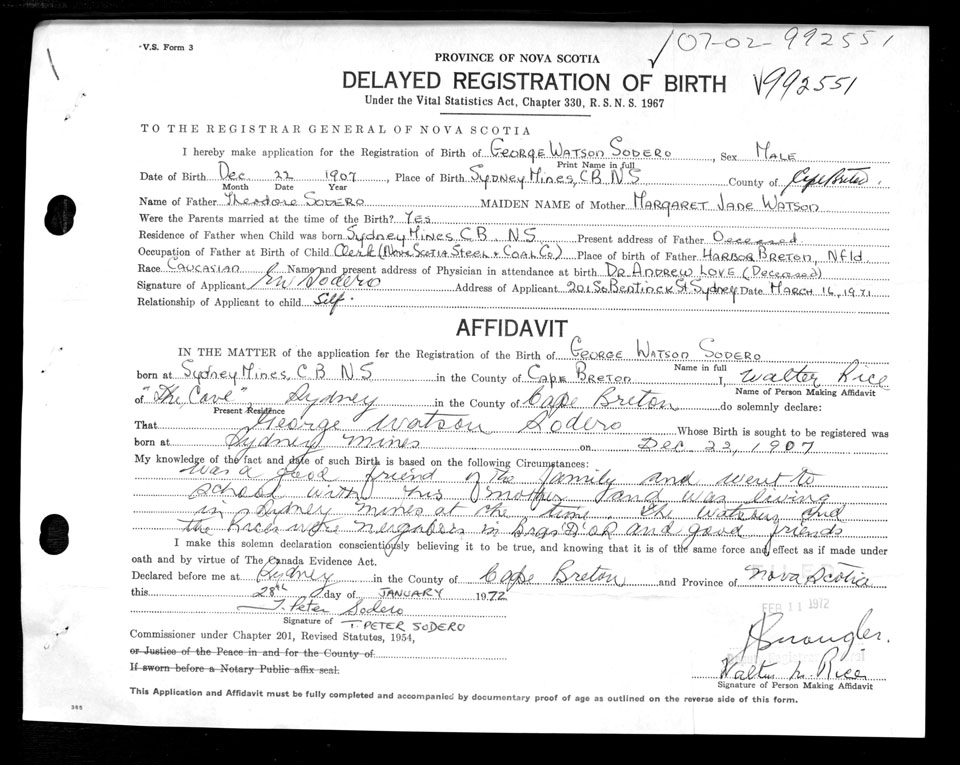 V.S. Form 3
07-02-992551
PROVINCE OF NOVA SCOTIA
DELAYED REGISTRATION OF BIRTH
V992551
Under the Vital Statistics Act, Chapter 330, R.S.N.S. 1967
TO THE REGISTRAR GENERAL OF NOVA SCOTIA
I hereby make application for the Registration of Birth of GEORGE WATSON SODERO, Sex MALE
Print Name in full
Date of Birth Dec 22 1907, Place of Birth SYDNEY MINES, C.B. N S County of Cape Breton.
Month Date Year
Name of Father Theodore SODERO MAIDEN NAME of Mother MARGARET JANE WATSON
Were the Parents married at the time of the Birth? YES
Residence of Father when Child was born SYDNEY MINES C.B. NS Present address of Father Deceased
Occupation of Father at Birth of Child Clerk (NOVA SCOTIA STEEL + COAL CO.) Place of birth of Father HARBOR BRETON, NFld.
Race CAUCASIAN Name and present address of Physician in attendance at birth DR. ANDREW LOVE (Deceased)
Signature of Applicant GW Sodero Address of Applicant 201 So Bentinck St Sydney Date MARCH 16, 1971
Relationship of Applicant to child Self.
AFFIDAVIT
IN THE MATTER of the application for the Registration of the Birth of GEORGE WATSON SODERO
Name in full
born at Sydney Mines, C B N S in the County of CAPE BRETON I, Walter Rice
Name of Person Making Affidavit
of "The Cove", Sydney in the County of Cape Breton do solemnly declare:
Present Residence
That George Watson Sodero Whose Birth is sought to be registered was
born at Sydney Mines on Dec. 22, 1907
My knowledge of the fact and date of such Birth is based on the following Circumstances:
was a good friend of the family and went to
school with his mother and was living
in Sydney Mines at the time. The Watsons and
the Rices were neighbors in Bras D'OR and good friends
I make this solemn declaration conscientiously believing it to be true, and knowing that it is of the same force and effect as if made under
oath and by virtue of The Canada Evidence Act.
Declared before me at Sydney in the County of Cape Breton and Province of Nova Scotia
this 28th day of JANUARY 1972
FEB 11 1972
T. Peter Sodero
Signature of T. PETER SODERO
Commissioner under Chapter 201, Revised Statutes, 1954,
or Justice of the Peace in and for the County of
If sworn before a Notary Public affix seal.
Walter Rice
Signature of Person Making Affidavit
This Application and Affidavit must be fully completed and accompanied by documentary proof of age as outlined on the reverse side of this form.
385